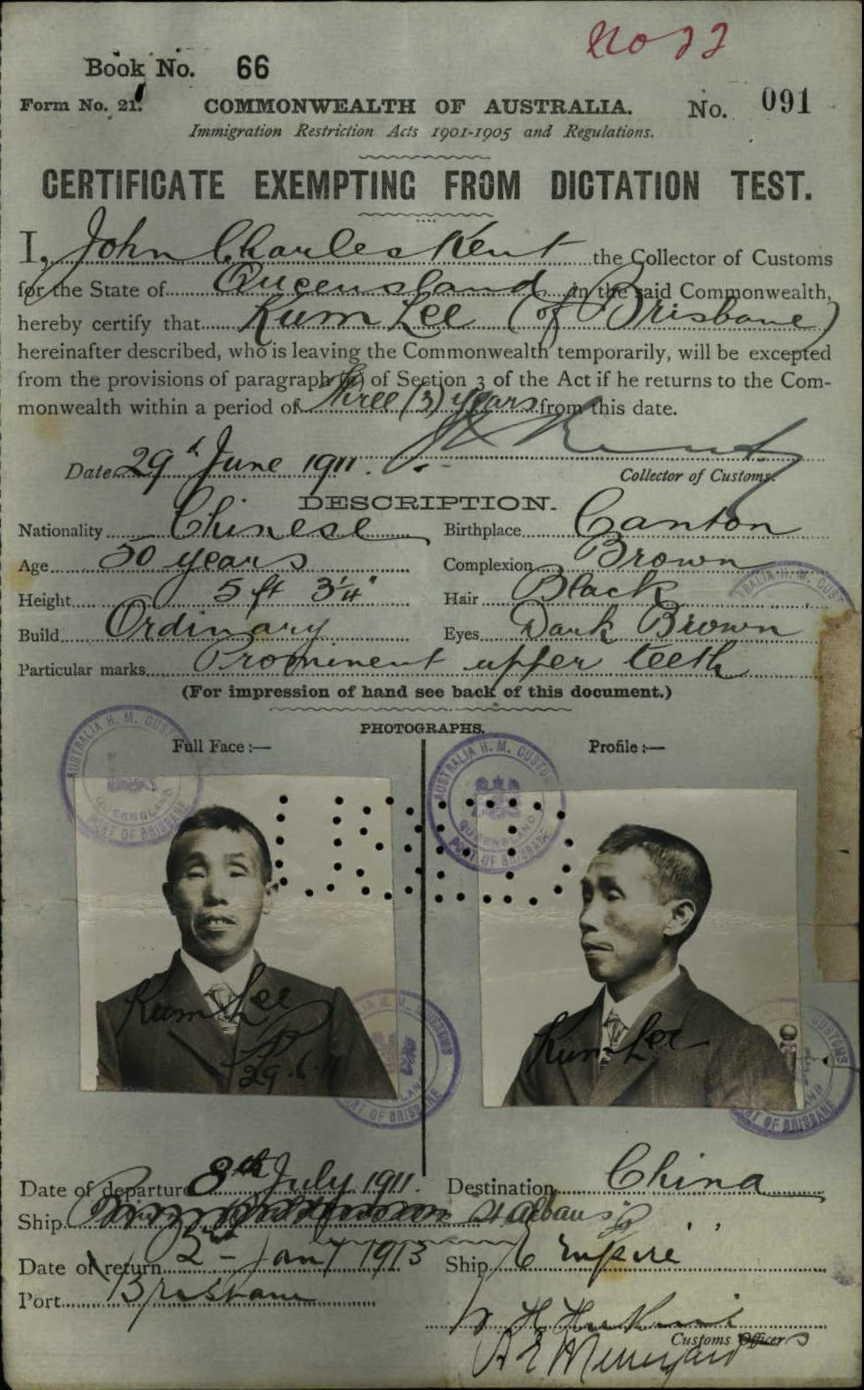 No 22
Book No. 66
Form No. 21. COMMONWEALTH OF AUSTRALIA. No. 091
Immigration Restriction Acts 1901-1905 and Regulations.
CERTIFICATE EXEMPTING FROM DICTATION TEST.
I, John Charles Kent the Collector of Customs
for the State of Queensland in the said Commonwealth,
hereby certify that Kum Lee (of Brisbane)
hereinafter described, who is leaving the Commonwealth temporarily, will be excepted
from the provisions of paragraph (a) of Section 3 of the Act if he returns to the Com-
monwealth within a period of Three (3) years from this date.
Kent
Date 29th June 1911. Collector of Customs.
DESCRIPTION.
Nationality Chinese Birthplace Canton
Age 50 years Complexion Brown
Height 5 ft 3¼" Hair Black
Build Ordinary Eyes Dark Brown
Particular marks Prominent upper teeth
(For impression of hand see back of this document.)
PHOTOGRAPHS.
Full Face :— Profile :—
AUSTRALIA H. M. CUSTOMS
QUEENSLAND
PORT OF BRISBANE
Kum Lee
29.6.11
Kum Lee
Date of departure 8th July 1911. Destination China
Ship St Albans
Date of return 2nd Jany 1913 Ship Empire
Port Brisbane
Customs Officers